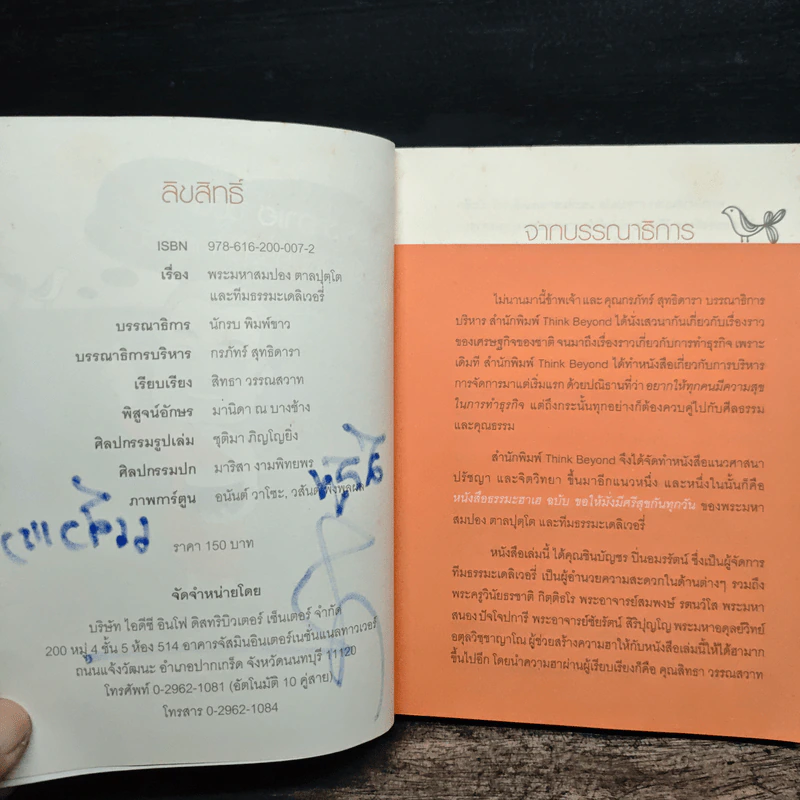 ลิขสิทธิ์
ISBN 978-616-200-007-2
เรื่อง พระมหาสมปอง ตาลปุตฺโต
และทีมธรรมะเดลิเวอรี่
บรรณาธิการ นักรบ พิมพ์ขาว
บรรณาธิการบริหาร กรภัทร์ สุทธิดารา
เรียบเรียง สิทธา วรรณสวาท
พิสูจน์อักษร ม่านิดา ณ บางช้าง
ศิลปกรรมรูปเล่ม ชุติมา ภิญโญยิ่ง
ศิลปกรรมปก มาริสา งามพิทยพร
ภาพการ์ตูน อนันต์ วาโซะ, วสันต์
ราคา 150 บาท
จัดจำหน่ายโดย
บริษัท ไอดีซี อินโฟ ดิสทริบิวเตอร์ เซ็นเตอร์ จำกัด
200 หมู่ 4 ชั้น 5 ห้อง 514 อาคารจัสมินอินเตอร์เนชั่นแนลทาวเวอร์
ถนนแจ้งวัฒนะ อำเภอปากเกร็ด จังหวัดนนทบุรี 11120
โทรศัพท์ 0-2962-1081 (อัตโนมัติ 10 คู่สาย)
โทรสาร 0-2962-1084
จากบรรณาธิการ
ไม่นานมานี้ข้าพเจ้า และ คุณกรภัทร์ สุทธิดารา บรรณาธิการ
บริหาร สำนักพิมพ์ Think Beyond ได้นั่งเสวนากันเกี่ยวกับเรื่องราว
ของเศรษฐกิจของชาติ จนมาถึงเรื่องราวเกี่ยวกับการทำธุรกิจ เพราะ
เดิมที สำนักพิมพ์ Think Beyond ได้ทำหนังสือเกี่ยวกับการบริหาร
การจัดการมาแต่เริ่มแรก ด้วยปณิธานที่ว่า อยากให้ทุกคนมีความสุข
ในการทำธุรกิจ แต่ถึงกระนั้นทุกอย่างก็ต้องควบคู่ไปกับศีลธรรม
และคุณธรรม
สำนักพิมพ์ Think Beyond จึงได้จัดทำหนังสือแนวศาสนา
ปรัชญา และจิตวิทยา ขึ้นมาอีกแนวหนึ่ง และหนึ่งในนั้นก็คือ
หนังสือธรรมะฮาเฮ ฉบับ ขอให้มั่งมีศรีสุขกันทุกวัน ของพระมหา
สมปอง ตาลปุตฺโต และทีมธรรมะเดลิเวอรี่
หนังสือเล่มนี้ ได้คุณชินบัญชร ปิ่นอมรรัตน์ ซึ่งเป็นผู้จัดการ
ทีมธรรมะเดลิเวอรี่ เป็นผู้อำนวยความสะดวกในด้านต่างๆ รวมถึง
พระครูวินัยธรชาติ กิตฺติธโร พระอาจารย์สมพงษ์ รตนวํโส พระมหา
สนอง ปัจโจปการี พระอาจารย์ชัยรัตน์ สิริปุญฺโญ พระมหาอดุลย์วิทย์
อตุลวิชฺชาญาโณ ผู้ช่วยสร้างความฮาให้กับหนังสือเล่มนี้ให้ได้ฮามาก
ขึ้นไปอีก โดยนำความฮาผ่านผู้เรียบเรียงก็คือ คุณสิทธา วรรณสวาท